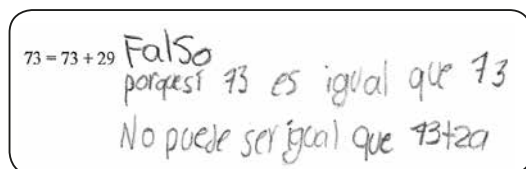 73 = 73 + 29 Falso
porqesí 73 es igual que 73
No puede ser igual que 73+29